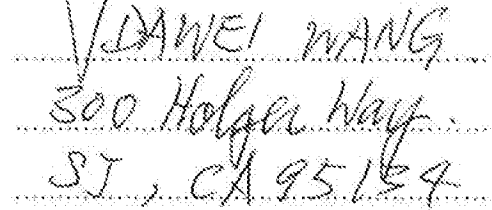 DAWEI WANG
300 Holger Way.
SJ, CA 95134